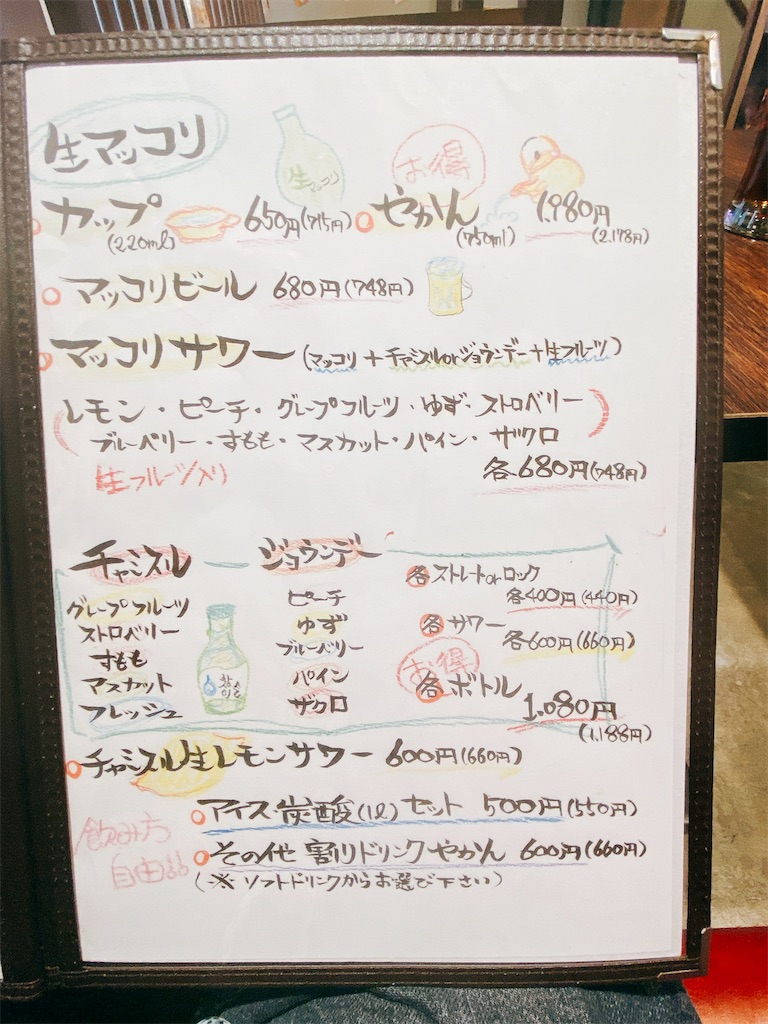 生マッコリ
生マッコリ
お得
カップ 650円(715円)
(220ml)
やかん 1.980円
(750ml) (2.178円)
マッコリビール 680円(748円)
マッコリサワー(マッコリ+チャミスルorジョウンデー+生フルーツ)
レモン・ピーチ・グレープフルーツ・ゆず・ストロベリー
ブルーベリー・すもも・マスカット・パイン・ザクロ
生フルーツ入り
各680円(748円)
チャミスル ー ジョウンデー
グレープフルーツ
ストロベリー
すもも
マスカット
フレッシュ
ピーチ
ゆず
ブルーベリー
パイン
ザクロ
各ストレートorロック
各400円(440円)
各サワー
各600円(660円)
お得
各ボトル 1.080円
(1.188円)
チャミスル生レモンサワー 600円(660円)
飲み方
自由
アイス・炭酸(1ℓ)セット 500円(550円)
その他 割りドリンクやかん 600円(660円)
(※ソフトドリンクからお選び下さい)